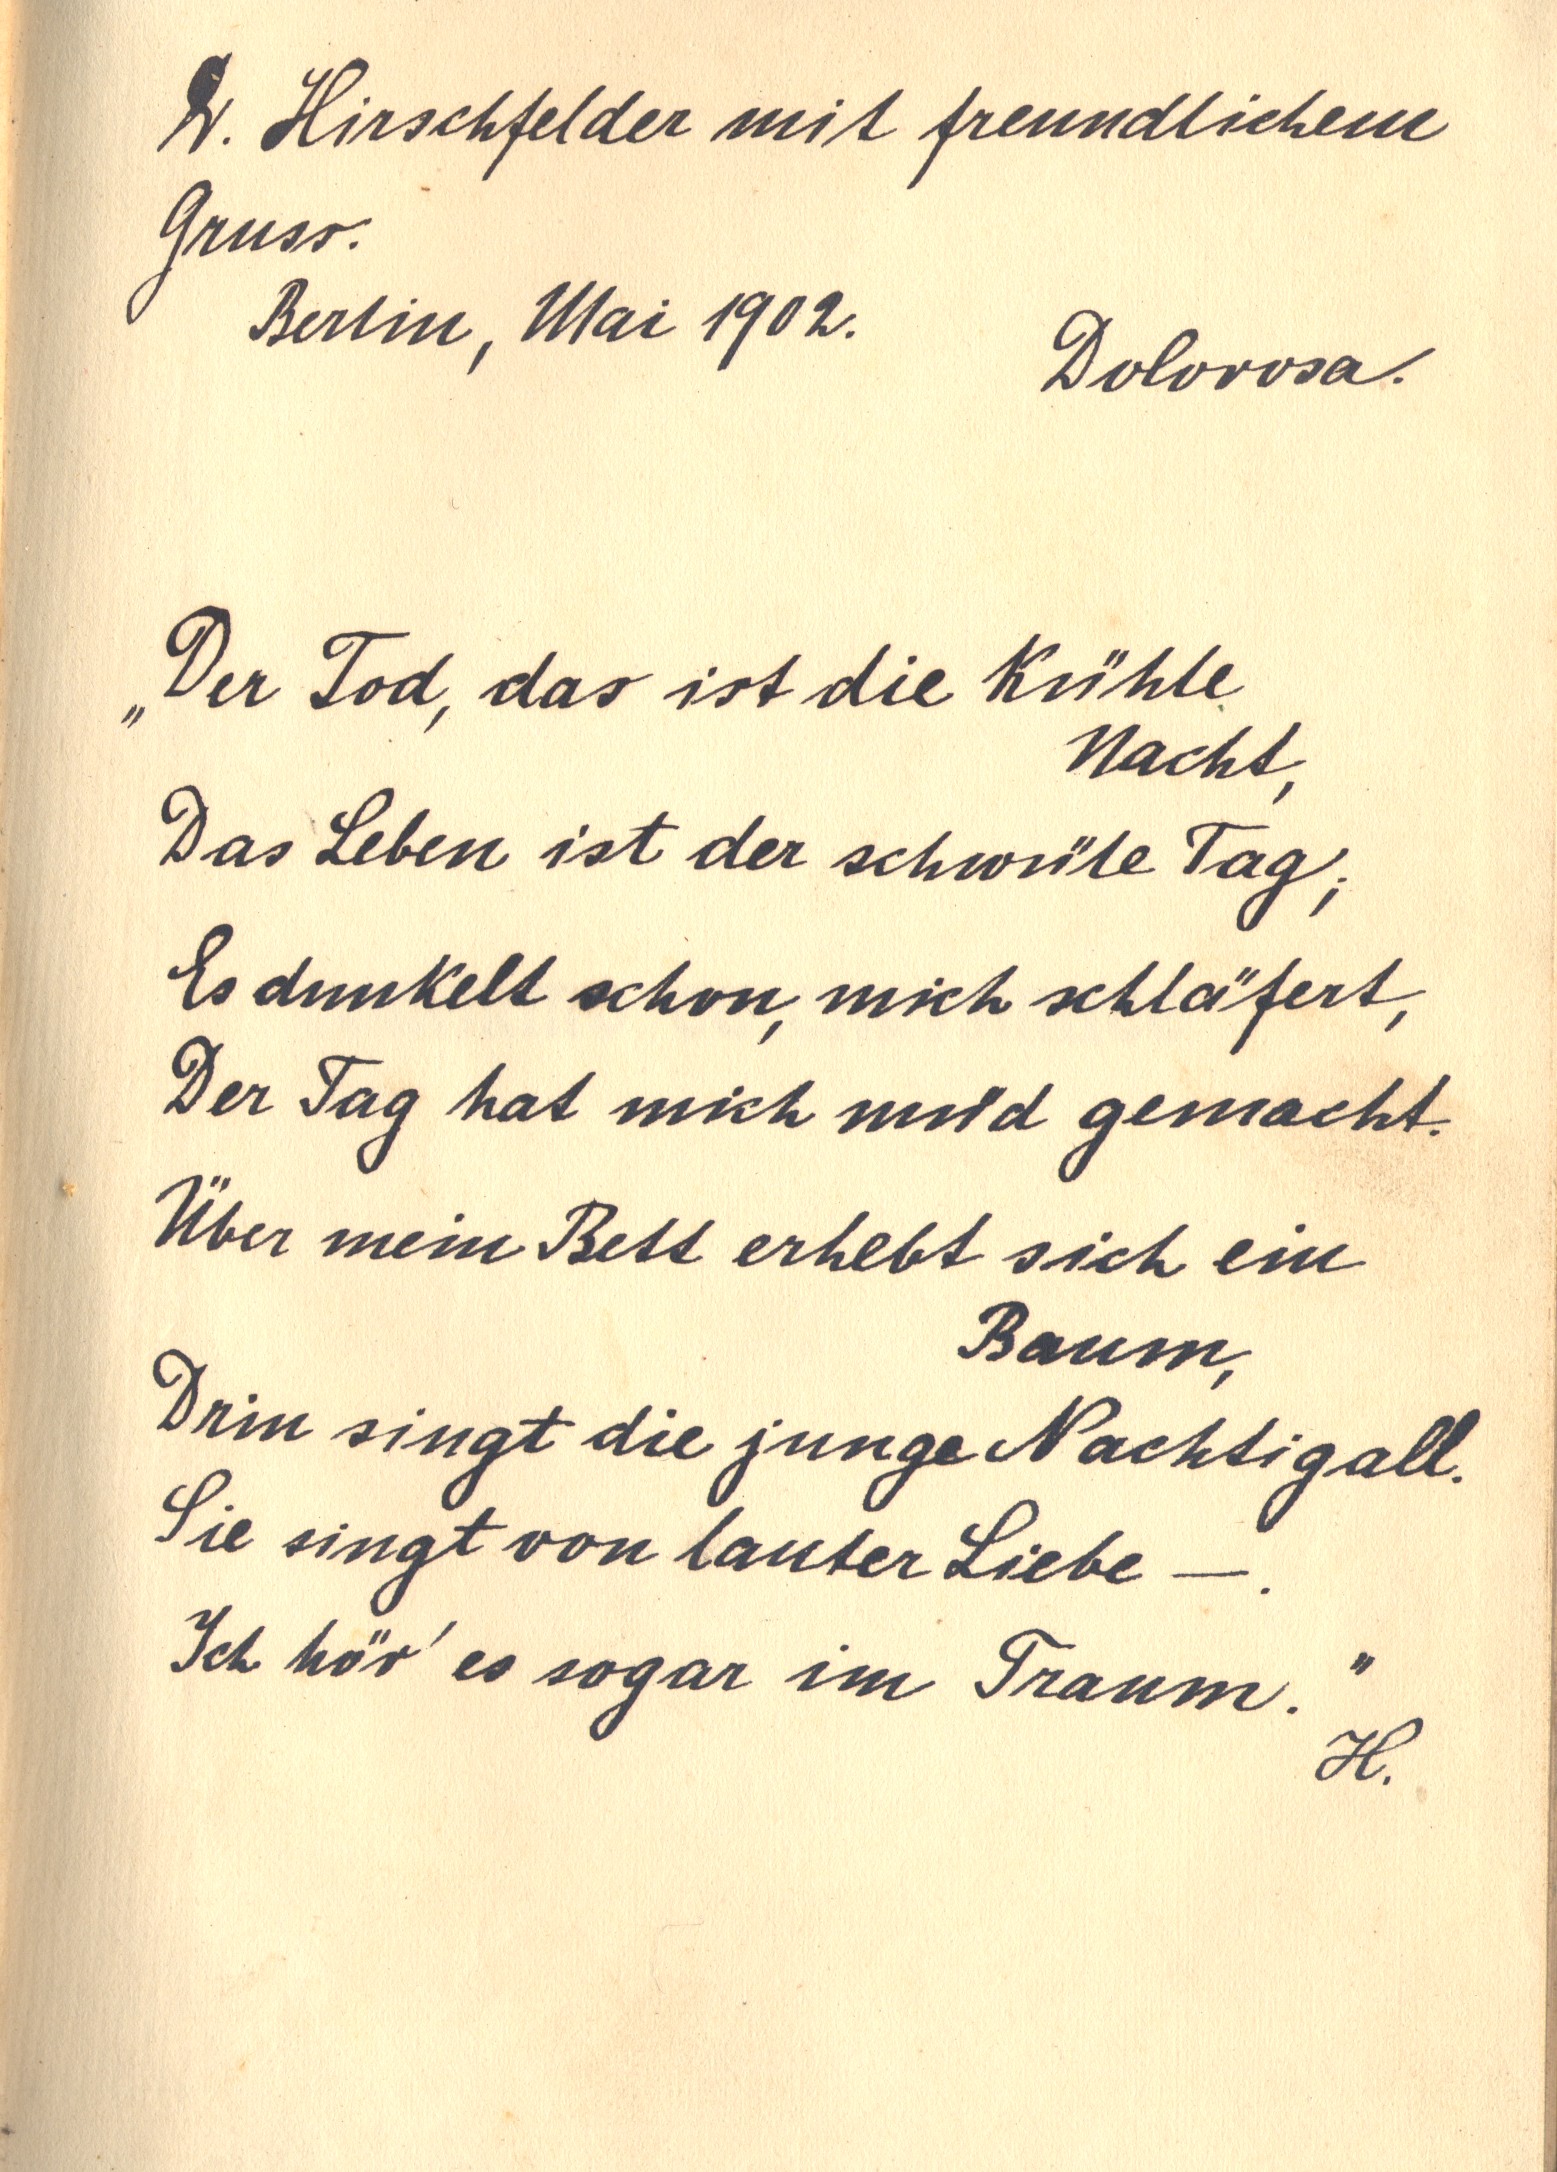 Hirschfelder mit freundlichem
Gruss.
Berlin, Mai 1902.
Dolorosa.
„Der Tod, das ist die Kühle
Nacht,
Das Leben ist der schwüle Tag;
Es dunkelt schon, mich schläfert,
Der Tag hat mich müd gemacht.
Über mein Bett erhebt sich ein
Baum,
Drin singt die junge Nachtigall.
Sie singt von lauter Liebe —.
Ich hör' es sogar im Traum."
H.